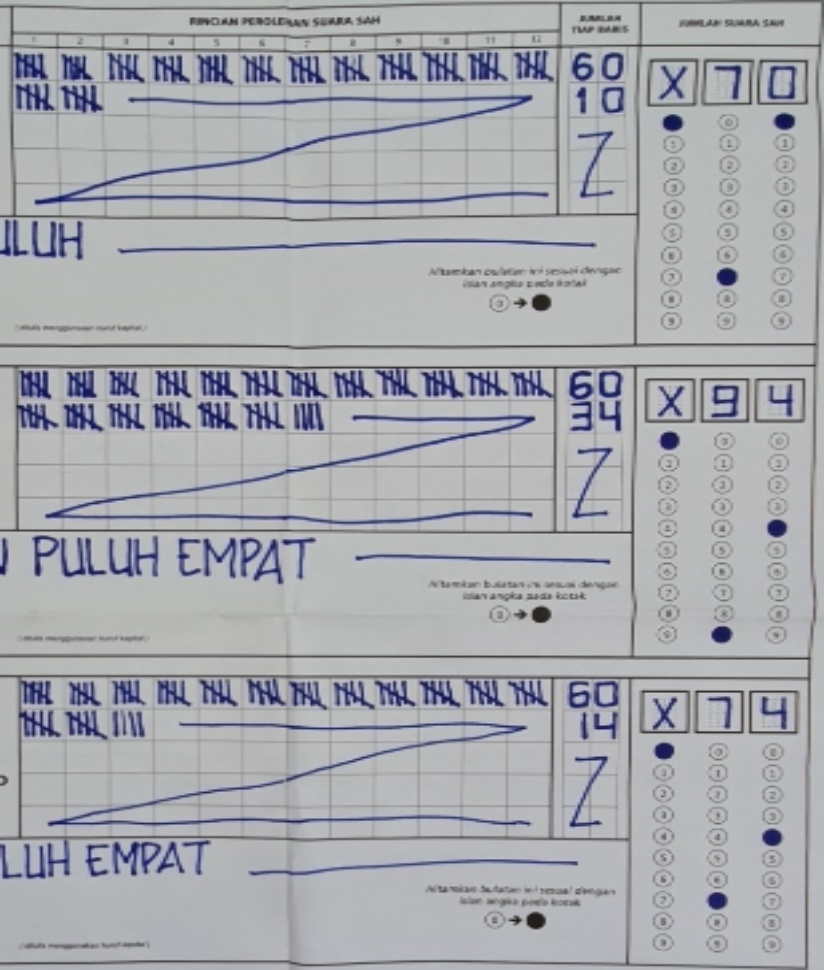 RINCIAN PEROLEHAN SUARA SAH
JUMLAH TIAP BARIS
JUMLAH SUARA SAH
1 2 3 4 5 6 7 8 9 10 11 12
60
10
X 7 0
ULUH
Hitamkan bulatan ini sesuai dengan
isian angka pada kotak
(ditulis menggunakan huruf kapital)
60
34
X 9 4
PULUH EMPAT
Hitamkan bulatan ini sesuai dengan
isian angka pada kotak
(ditulis menggunakan huruf kapital)
60
14
X 7 4
LUH EMPAT
Hitamkan bulatan ini sesuai dengan
isian angka pada kotak
(ditulis menggunakan huruf kapital)